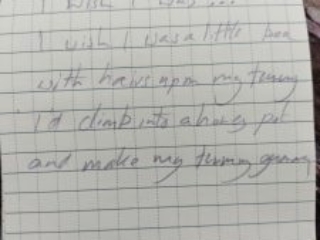 I wish I was...
I wish I was a little bee
with hairs upon my tummy
I'd climb into a honey pot
and make my tummy gummy